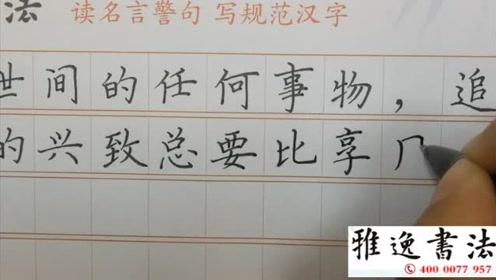 法 读名言警句 写规范汉字
世间的任何事物，追
的兴致总要比享
雅逸书法
400 0077 957